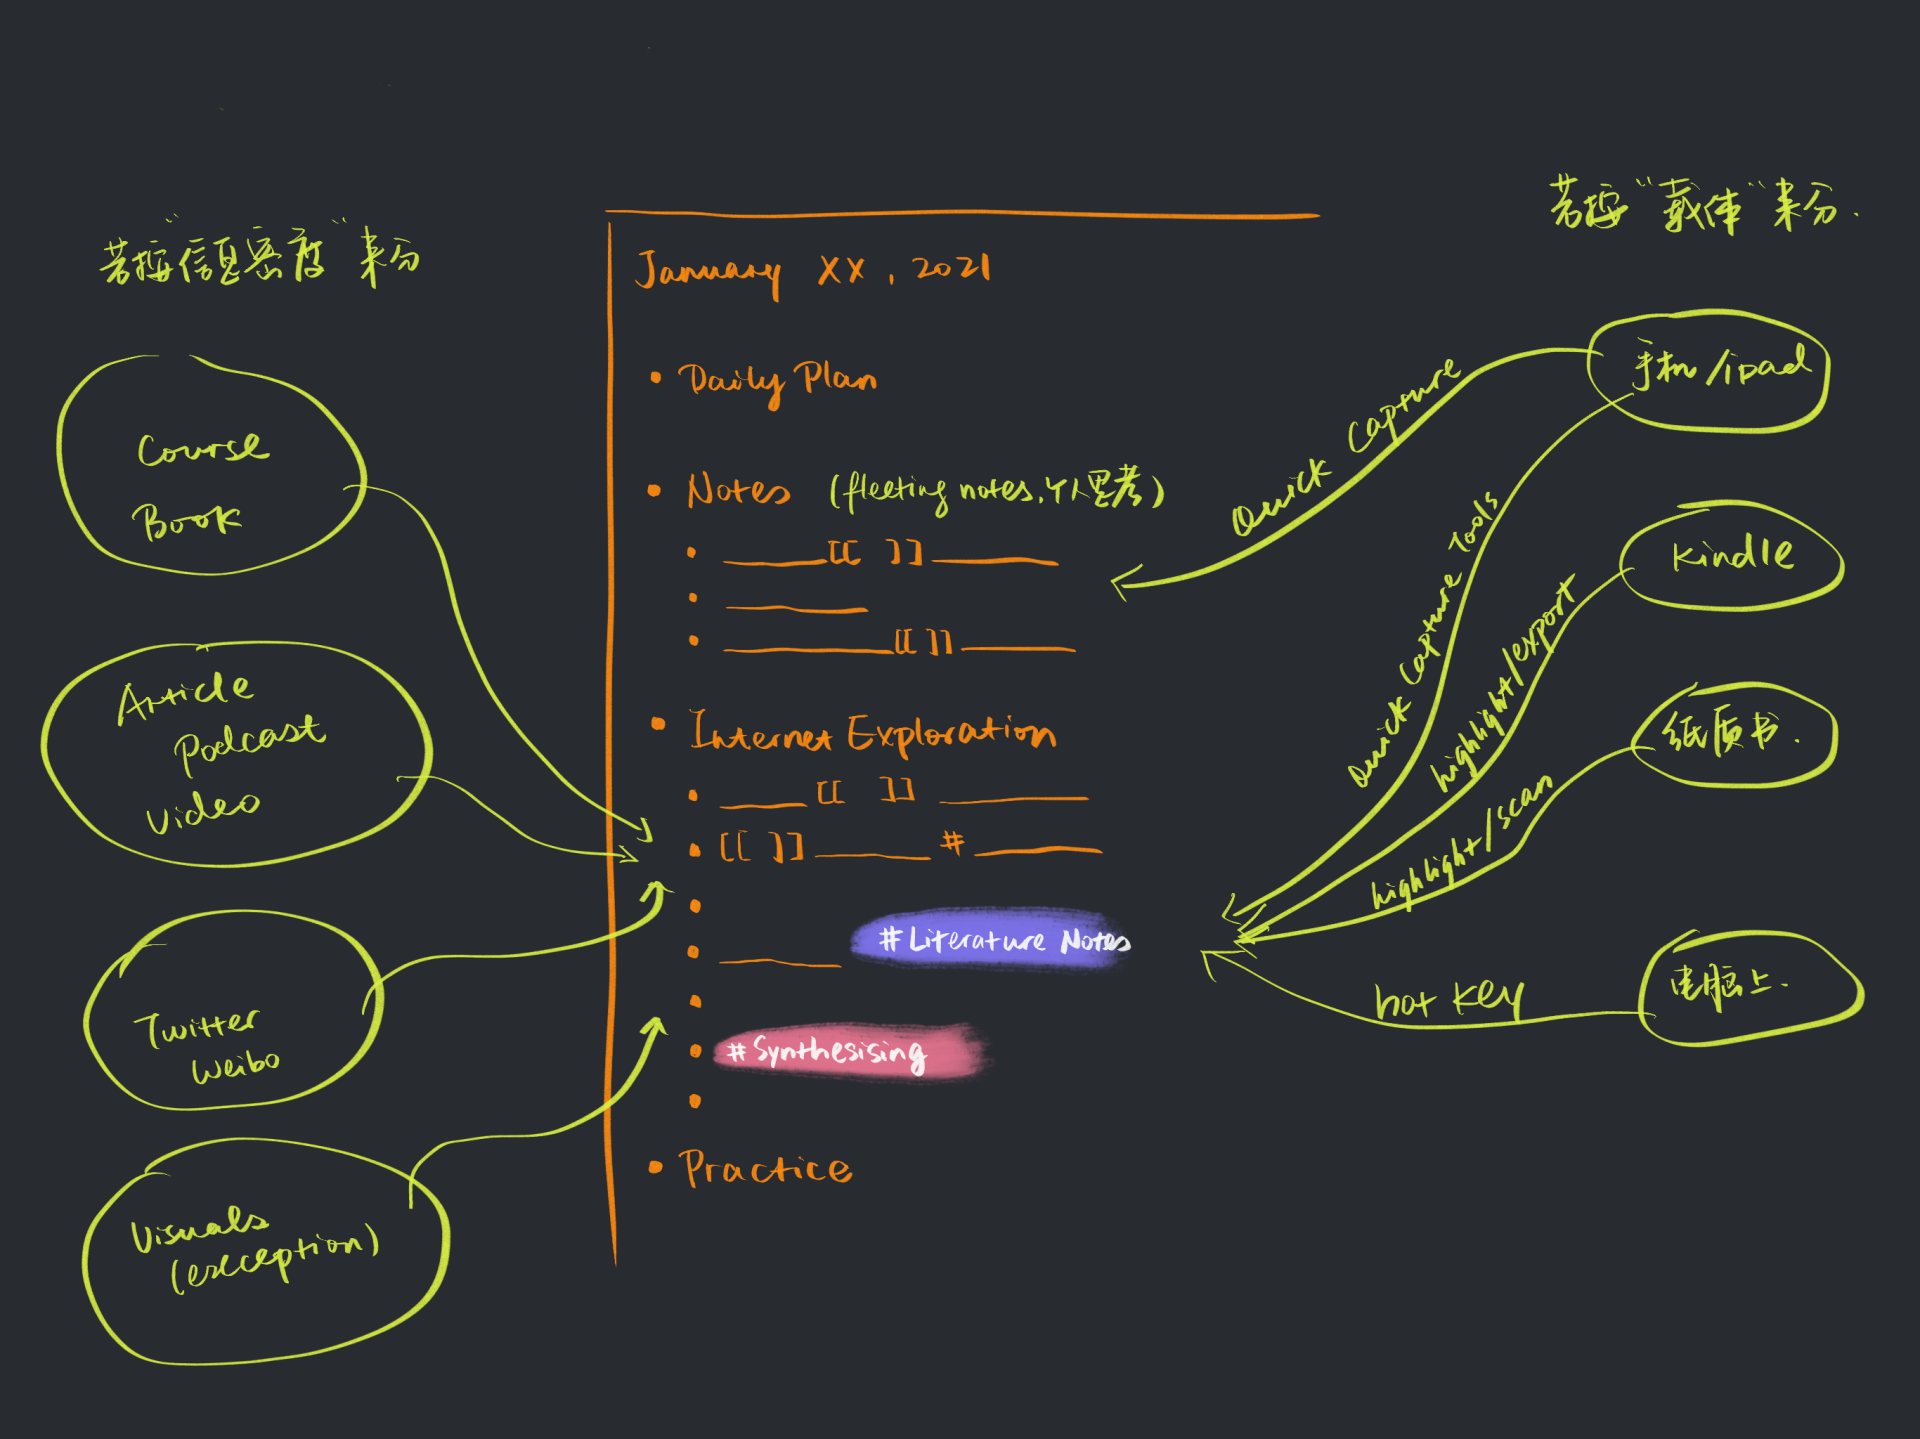 若按“信息密度”来分
Course
Book
Article
Podcast
Video
Twitter
Weibo
Visuals
(exception)
January XX, 2021
• Daily Plan
• Notes (fleeting notes, 个人思考)
• [[ ]]
•
• [[ ]]
• Internet Exploration
• [[ ]]
• [[ ]] #
•
• #Literature Notes
•
• #Synthesising
•
• Practice
若按“载体”来分.
手机/ipad
Quick Capture
Quick Capture Tools
Kindle
highlight/export
纸质书.
highlight/scan
电脑上.
hot key